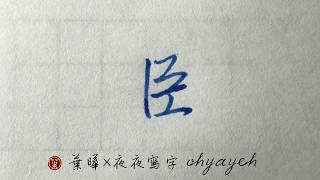 臣
葉曄×夜夜寫字 ohyayeh